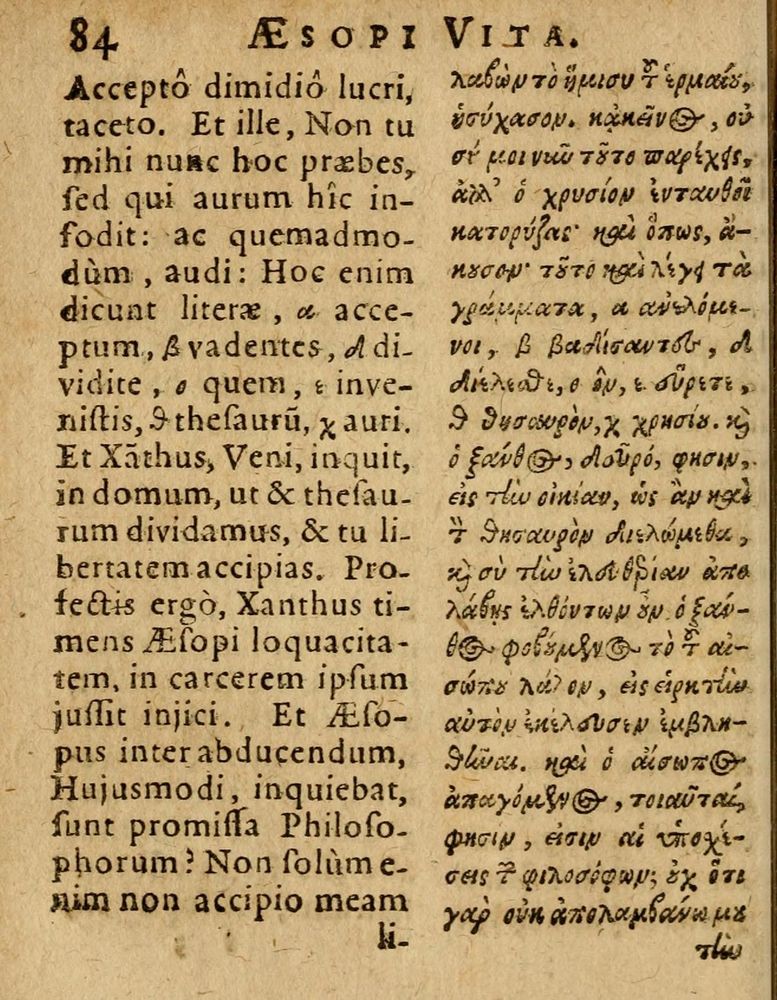 84 ÆSOPI VITA.
Acceptô dimidiô lucri,
taceto. Et ille, Non tu
mihi nunc hoc præbes,
ſed qui aurum hîc in-
fodit: ac quemadmo-
dùm, audi: Hoc enim
dicunt literæ, α acce-
ptum, β vadentes, δ di-
vidite, ο quem, ε inve-
niſtis, θ theſaurū, χ auri.
Et Xāthus, Veni, inquit,
in domum, ut & theſau-
rum dividamus, & tu li-
bertatem accipias. Pro-
fectis ergò, Xanthus ti-
mens Æſopi loquacita-
tem, in carcerem ipſum
juſſit injici. Et Æſo-
pus inter abducendum,
Hujusmodi, inquiebat,
ſunt promiſſa Philoſo-
phorum? Non ſolùm e-
nim non accipio meam
li-
λαβὼν τὸ ἥμισυ τοῦ ἑρμαίου,
ἡσύχασον. κἀκεῖνος, οὐ
σύ μοι νῦν τοῦτο παρέχεις,
ἀλλ' ὁ χρυσίον ἐνταυθοῖ
κατορύξας· καὶ ὅπως, ἄ-
κουσον· τοῦτο καὶ λέγει τὰ
γράμματα, α ἀνελόμε-
νοι, β βαδίσαντες, δ
διέλεσθε, ο ὃν, ε εὕρετε,
θ θησαυρὸν, χ χρυσίου. καὶ
ὁ ξάνθος, δεῦρό, φησιν,
εἰς τὴν οἰκίαν, ὡς ἂν καὶ
τὸν θησαυρὸν διελώμεθα,
καὶ σὺ τὴν ἐλευθερίαν ἀπο
λάβῃς ἐλθόντων οὖν ὁ ξάν-
θος φοβούμενος τὸ τοῦ αἰ-
σώπου λάλον, εἰς εἱρκτὴν
αὐτὸν ἐκέλευσεν ἐμβλη-
θῆναι. καὶ ὁ αἴσωπος
ἀπαγόμενος, τοιαῦται,
φησιν, εἰσιν αἱ ὑποσχέ-
σεις τῶν φιλοσόφων; οὐχ ὅτι
γὰρ οὐκ ἀπολαμβάνω μου
τὴν